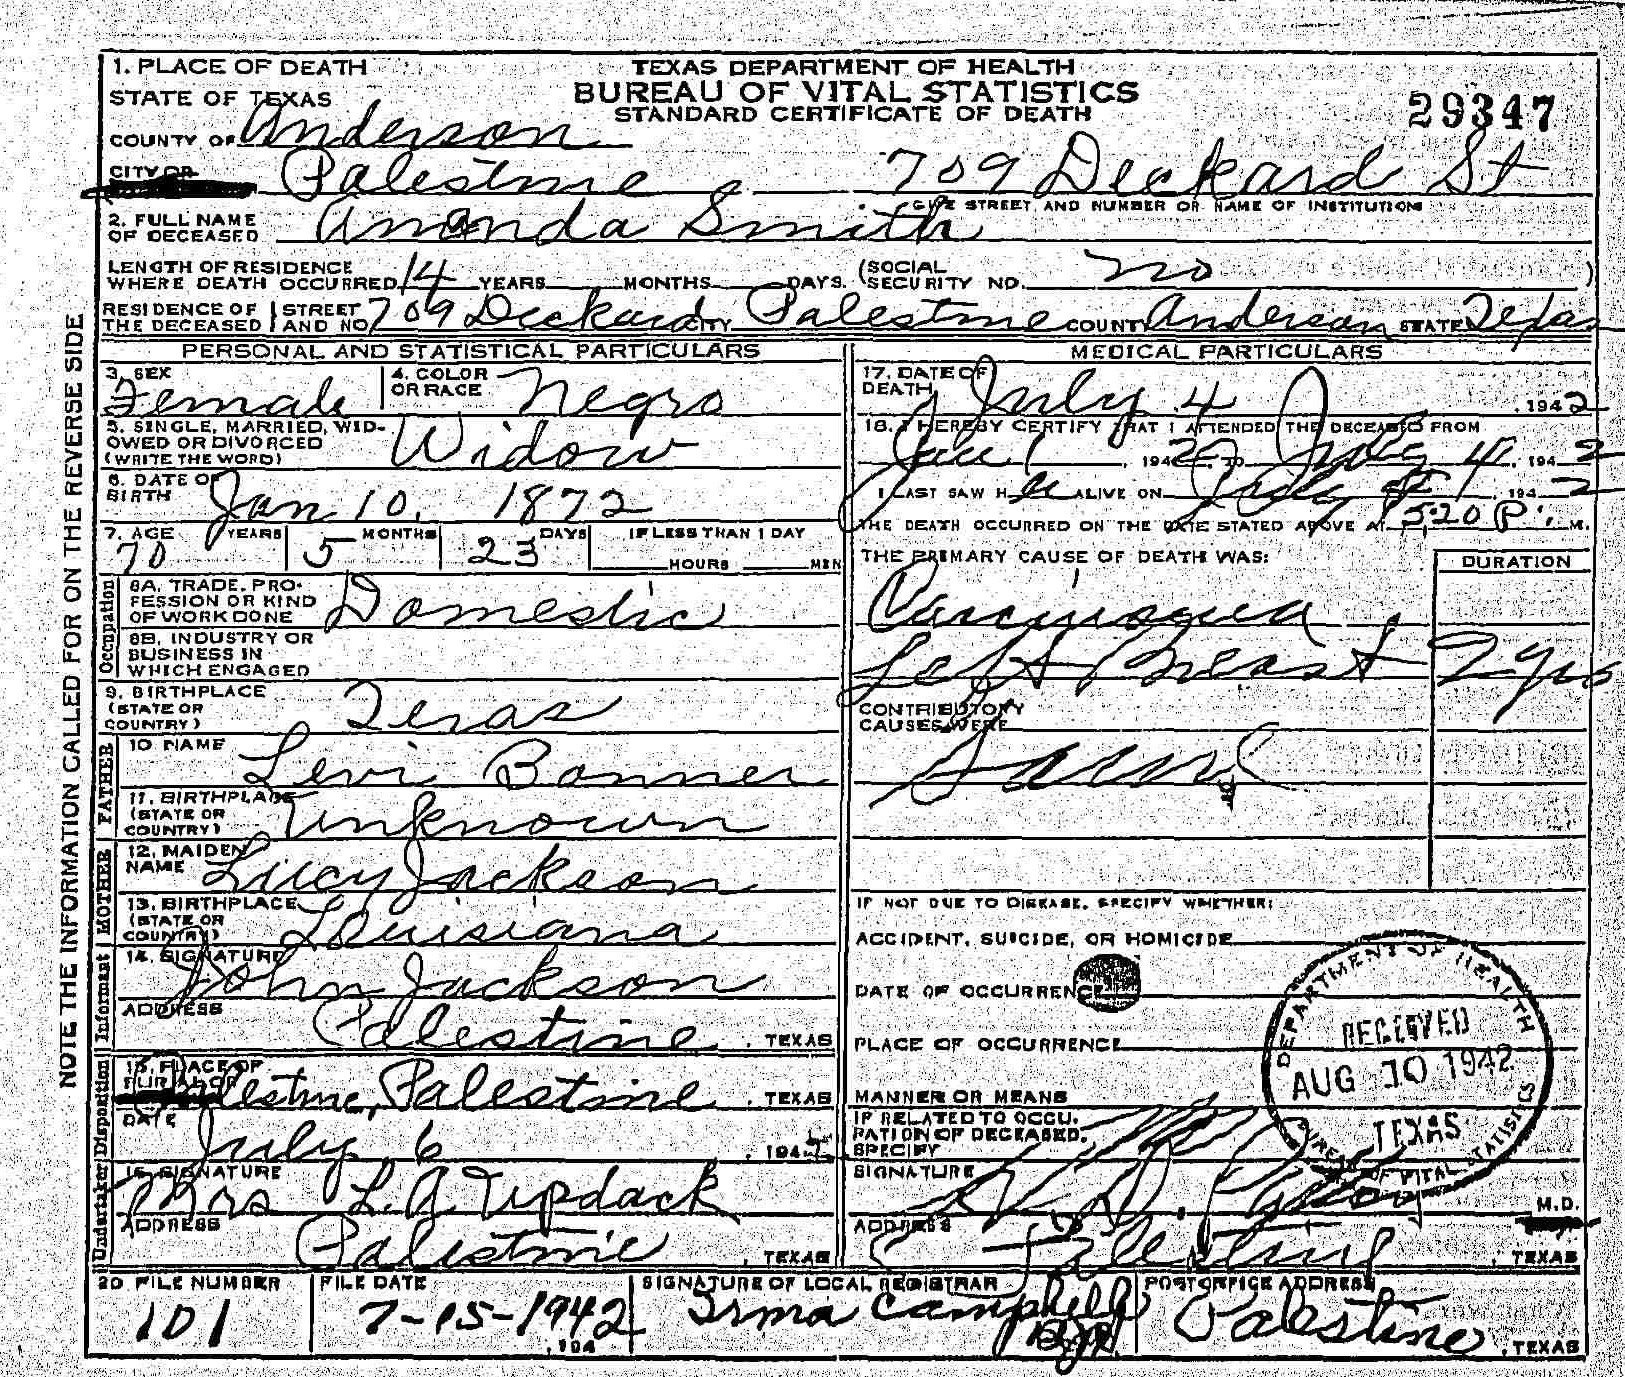 1. PLACE OF DEATH
STATE OF TEXAS
COUNTY OF Anderson
TEXAS DEPARTMENT OF HEALTH
BUREAU OF VITAL STATISTICS
STANDARD CERTIFICATE OF DEATH
29347
CITY OR Palestine 709 Deckard St
GIVE STREET AND NUMBER OR NAME OF INSTITUTION
2. FULL NAME
OF DECEASED Amanda Smith
LENGTH OF RESIDENCE
WHERE DEATH OCCURRED 14 YEARS MONTHS DAYS. (SOCIAL
SECURITY NO. no )
RESIDENCE OF STREET
THE DECEASED AND NO. 709 Deckard CITY Palestine COUNTY Anderson STATE Texas
PERSONAL AND STATISTICAL PARTICULARS
3. SEX
Female
4. COLOR
OR RACE Negro
5. SINGLE, MARRIED, WID-
OWED OR DIVORCED
(WRITE THE WORD) Widow
6. DATE OF
BIRTH Jan 10, 1872
7. AGE
70 YEARS 5 MONTHS 23 DAYS IF LESS THAN 1 DAY
HOURS MIN
Occupation
8A. TRADE, PRO-
FESSION OR KIND
OF WORK DONE Domestic
8B. INDUSTRY OR
BUSINESS IN
WHICH ENGAGED
9. BIRTHPLACE
(STATE OR
COUNTRY) Texas
FATHER
10 NAME Levi Bonner
11. BIRTHPLACE
(STATE OR
COUNTRY) Unknown
MOTHER
12. MAIDEN
NAME Lucy Jackson
13. BIRTHPLACE
(STATE OR
COUNTRY) Louisiana
Informant
14. SIGNATURE
John Jackson
ADDRESS
Palestine, TEXAS
Disposition
15. PLACE OF
BURIAL OR
Palestine, Palestine, TEXAS
DATE
July 6, 194
Undertaker
16. SIGNATURE
Mrs L. A. Updack
ADDRESS
Palestine, TEXAS
MEDICAL PARTICULARS
17. DATE OF
DEATH July 4, 1942
18. I HEREBY CERTIFY THAT I ATTENDED THE DECEASED FROM
1, 1942, TO July 4, 1942
I LAST SAW H er ALIVE ON July 4, 1942
THE DEATH OCCURRED ON THE DATE STATED ABOVE AT 5:20 P. M.
THE PRIMARY CAUSE OF DEATH WAS:
DURATION
Carcinoma
Left Breast 2 yrs
CONTRIBUTORY
CAUSES WERE
Same
IF NOT DUE TO DISEASE, SPECIFY WHETHER:
ACCIDENT, SUICIDE, OR HOMICIDE
DATE OF OCCURRENCE
PLACE OF OCCURRENCE
MANNER OR MEANS
IF RELATED TO OCCU-
PATION OF DECEASED,
SPECIFY
SIGNATURE
M.D.
ADDRESS Palestine, TEXAS
DEPARTMENT OF HEALTH
RECEIVED
AUG 10 1942
TEXAS
BUREAU OF VITAL STATISTICS
20 FILE NUMBER
101
FILE DATE
7-15-1942
, 194
SIGNATURE OF LOCAL REGISTRAR
Irma Campbell
POSTOFFICE ADDRESS
Palestine, TEXAS
NOTE THE INFORMATION CALLED FOR ON THE REVERSE SIDE